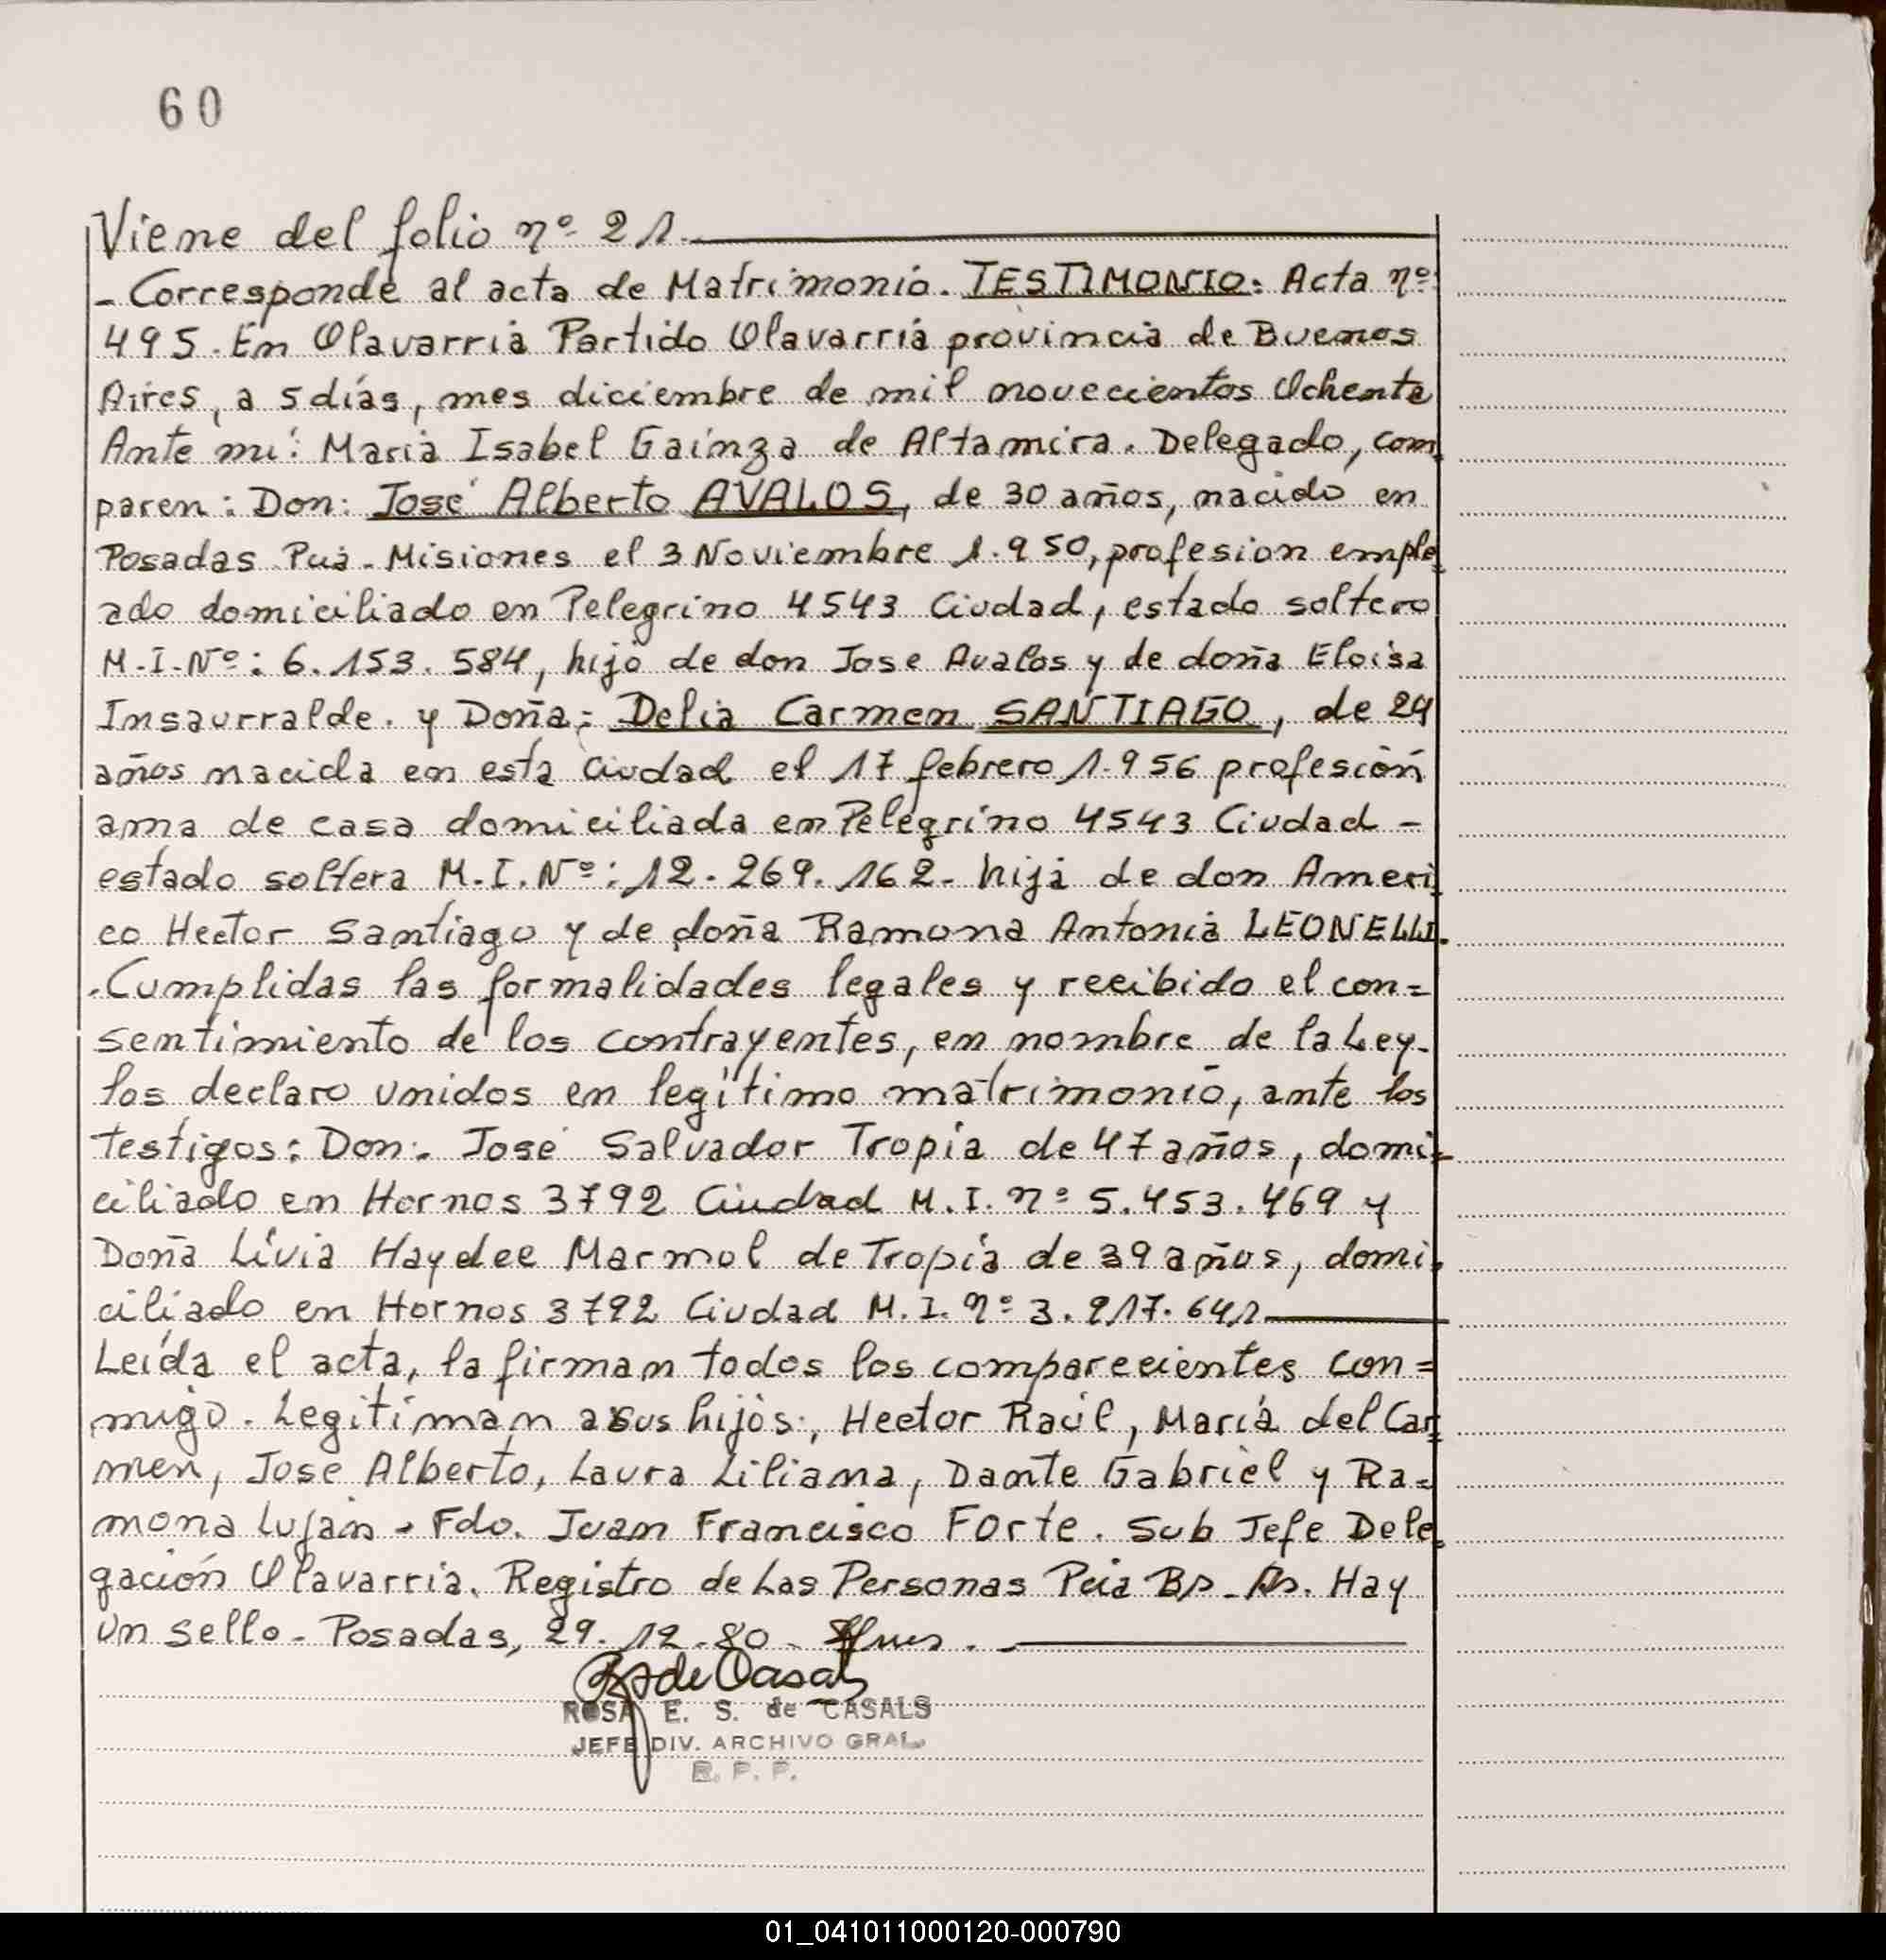 60
Viene del folio nº 21.
- Corresponde al acta de Matrimonio. TESTIMONIO: Acta nº
495. En Olavarria Partido Olavarria provincia de Buenos
Aires, a 5 días, mes diciembre de mil novecientos Ochenta
Ante mi: Maria Isabel Gainza de Altamira. Delegado, com
paren: Don: José Alberto AVALOS, de 30 años, nacido en
Posadas Pcia. Misiones el 3 Noviembre 1.950, profesion emple
ado domiciliado en Pelegrino 4543 Ciudad, estado soltero
M.I.Nº: 6.153.584, hijo de don Jose Avalos y de doña Eloisa
Insaurralde. y Doña: Delia Carmen SANTIAGO, de 24
años nacida en esta Ciudad el 17 febrero 1.956 profesión
ama de casa domiciliada en Pelegrino 4543 Ciudad -
estado soltera M.I.Nº: 12.269.162- hija de don Ameri
co Hector Santiago y de doña Ramona Antonia LEONELLI.
.Cumplidas las formalidades legales y recibido el con=
sentimiento de los contrayentes, en nombre de la Ley-
los declaro unidos en legítimo matrimonio, ante los
testigos: Don: José Salvador Tropia de 47 años, domi-
ciliado en Hornos 3792 Ciudad M.I. nº 5.453.469 y
Doña Livia Haydee Marmol de Tropia de 39 años, domi-
ciliado en Hornos 3792 Ciudad M.I. nº 3.917.641
Leída el acta, la firman todos los comparecientes con=
migo. Legitiman a sus hijos:, Hector Raúl, María del Car
men, Jose Alberto, Laura Liliana, Dante Gabriel y Ra=
mona Luján - Fdo. Juan Francisco Forte. Sub Jefe Dele
gación Olavarria. Registro de Las Personas Pcia Bs. As. Hay
un sello. Posadas, 29.12.80.
RS de Casals
ROSA E. S. de CASALS
JEFE DIV. ARCHIVO GRAL
R. P. P.
01_041011000120-000790